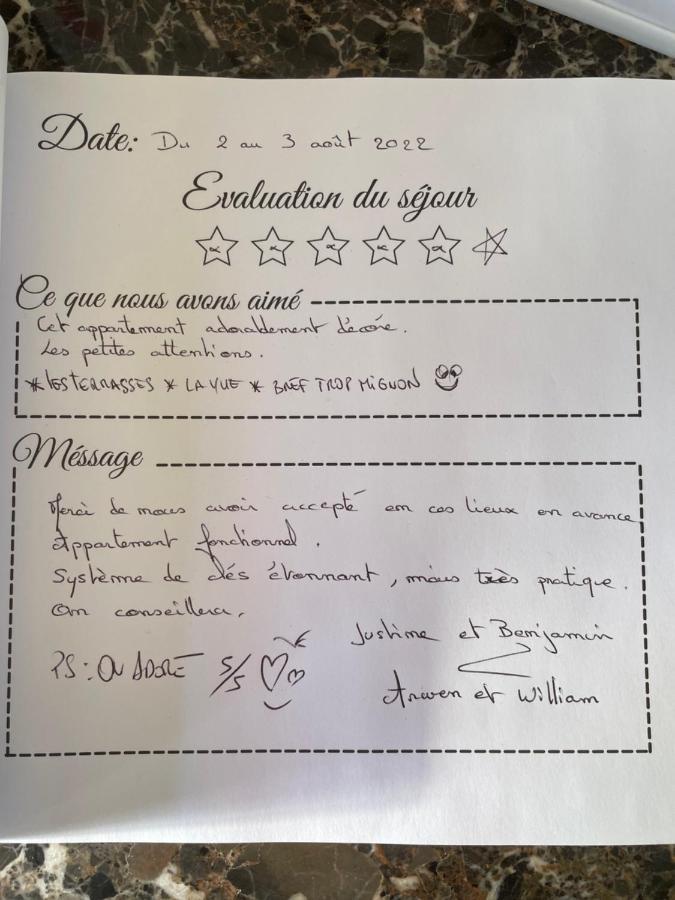 Date: Du 2 au 3 août 2022
Evaluation du séjour
Ce que nous avons aimé
Cet appartement adorablement décoré.
Les petites attentions.
* LES TERRASSES * LA VUE * BREF TROP MIGNON
Méssage
Merci de nous avoir accepté en ces lieux en avance
Appartement fonctionnel.
Système de clés étonnant, mais très pratique.
On conseillera.
Justine et Benjamin
PS: ON ADORE 5/5
Arwen et William